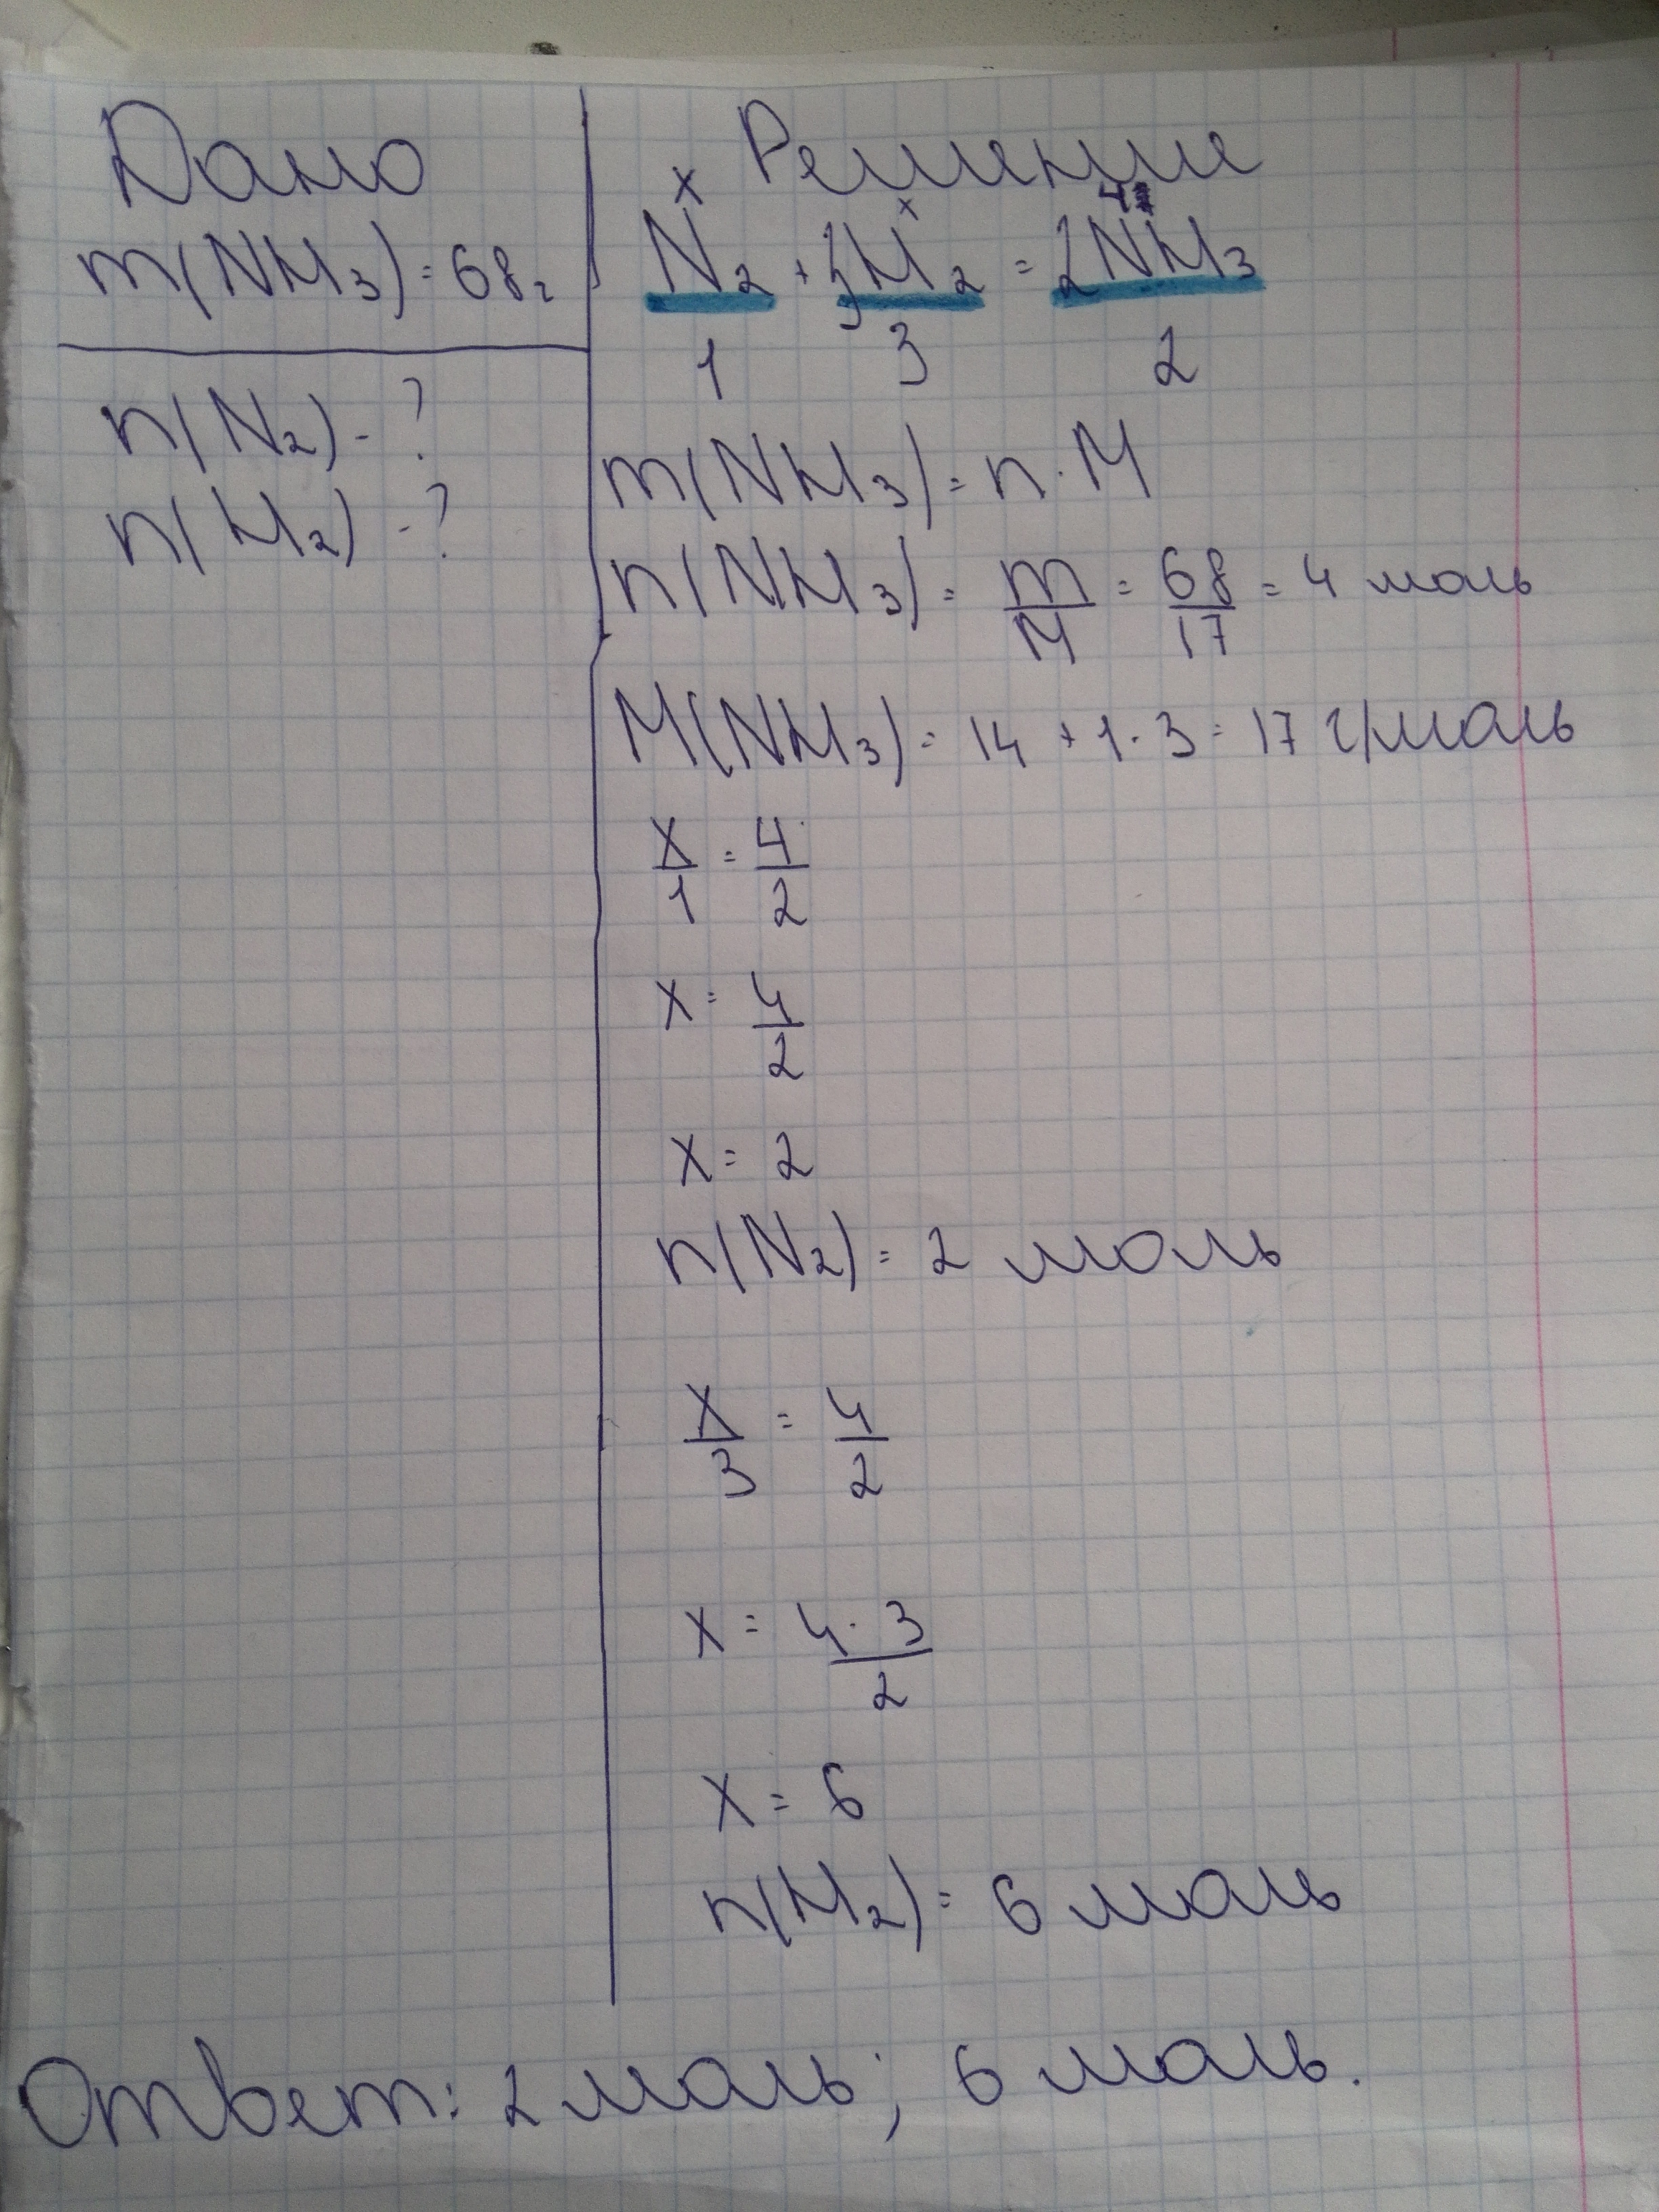 Дано
m(NH₃) = 68г
n(N₂) - ?
n(H₂) - ?
Решение
x x 4
N₂ + 3H₂ = 2NH₃
1 3 2
m(NH₃) = n · M
n(NH₃) = m/M = 68/17 = 4 моль
M(NH₃) = 14 + 1 · 3 = 17 г/моль
x/1 = 4/2
x = 4/2
x = 2
n(N₂) = 2 моль
x/3 = 4/2
x = 4 · 3/2
x = 6
n(H₂) = 6 моль
Ответ: 2 моль; 6 моль.